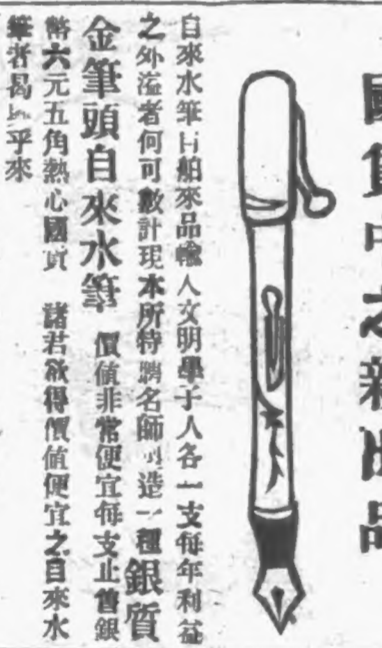 國貨中之新出品
自來水筆舶來品輸人文明學子人各一支每年利益
之外溢者何可數計現本所特聘名師製造一種銀質
金筆頭自來水筆 價値非常便宜每支止售銀
幣六元五角熱心國貨 諸君欲得價値便宜之自來水
筆者曷興乎來